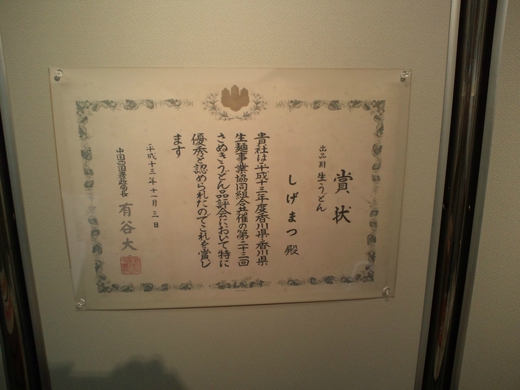 賞状
出品財 生うどん
しげまつ 殿
貴社は平成十三年度香川県香川県
生麺事業協同組合共催の第二十三回
さぬきうどん品評会において特に
優秀と認められたのでこれを賞し
ます
平成十三年十一月三日
中国四国農政局長 有谷大